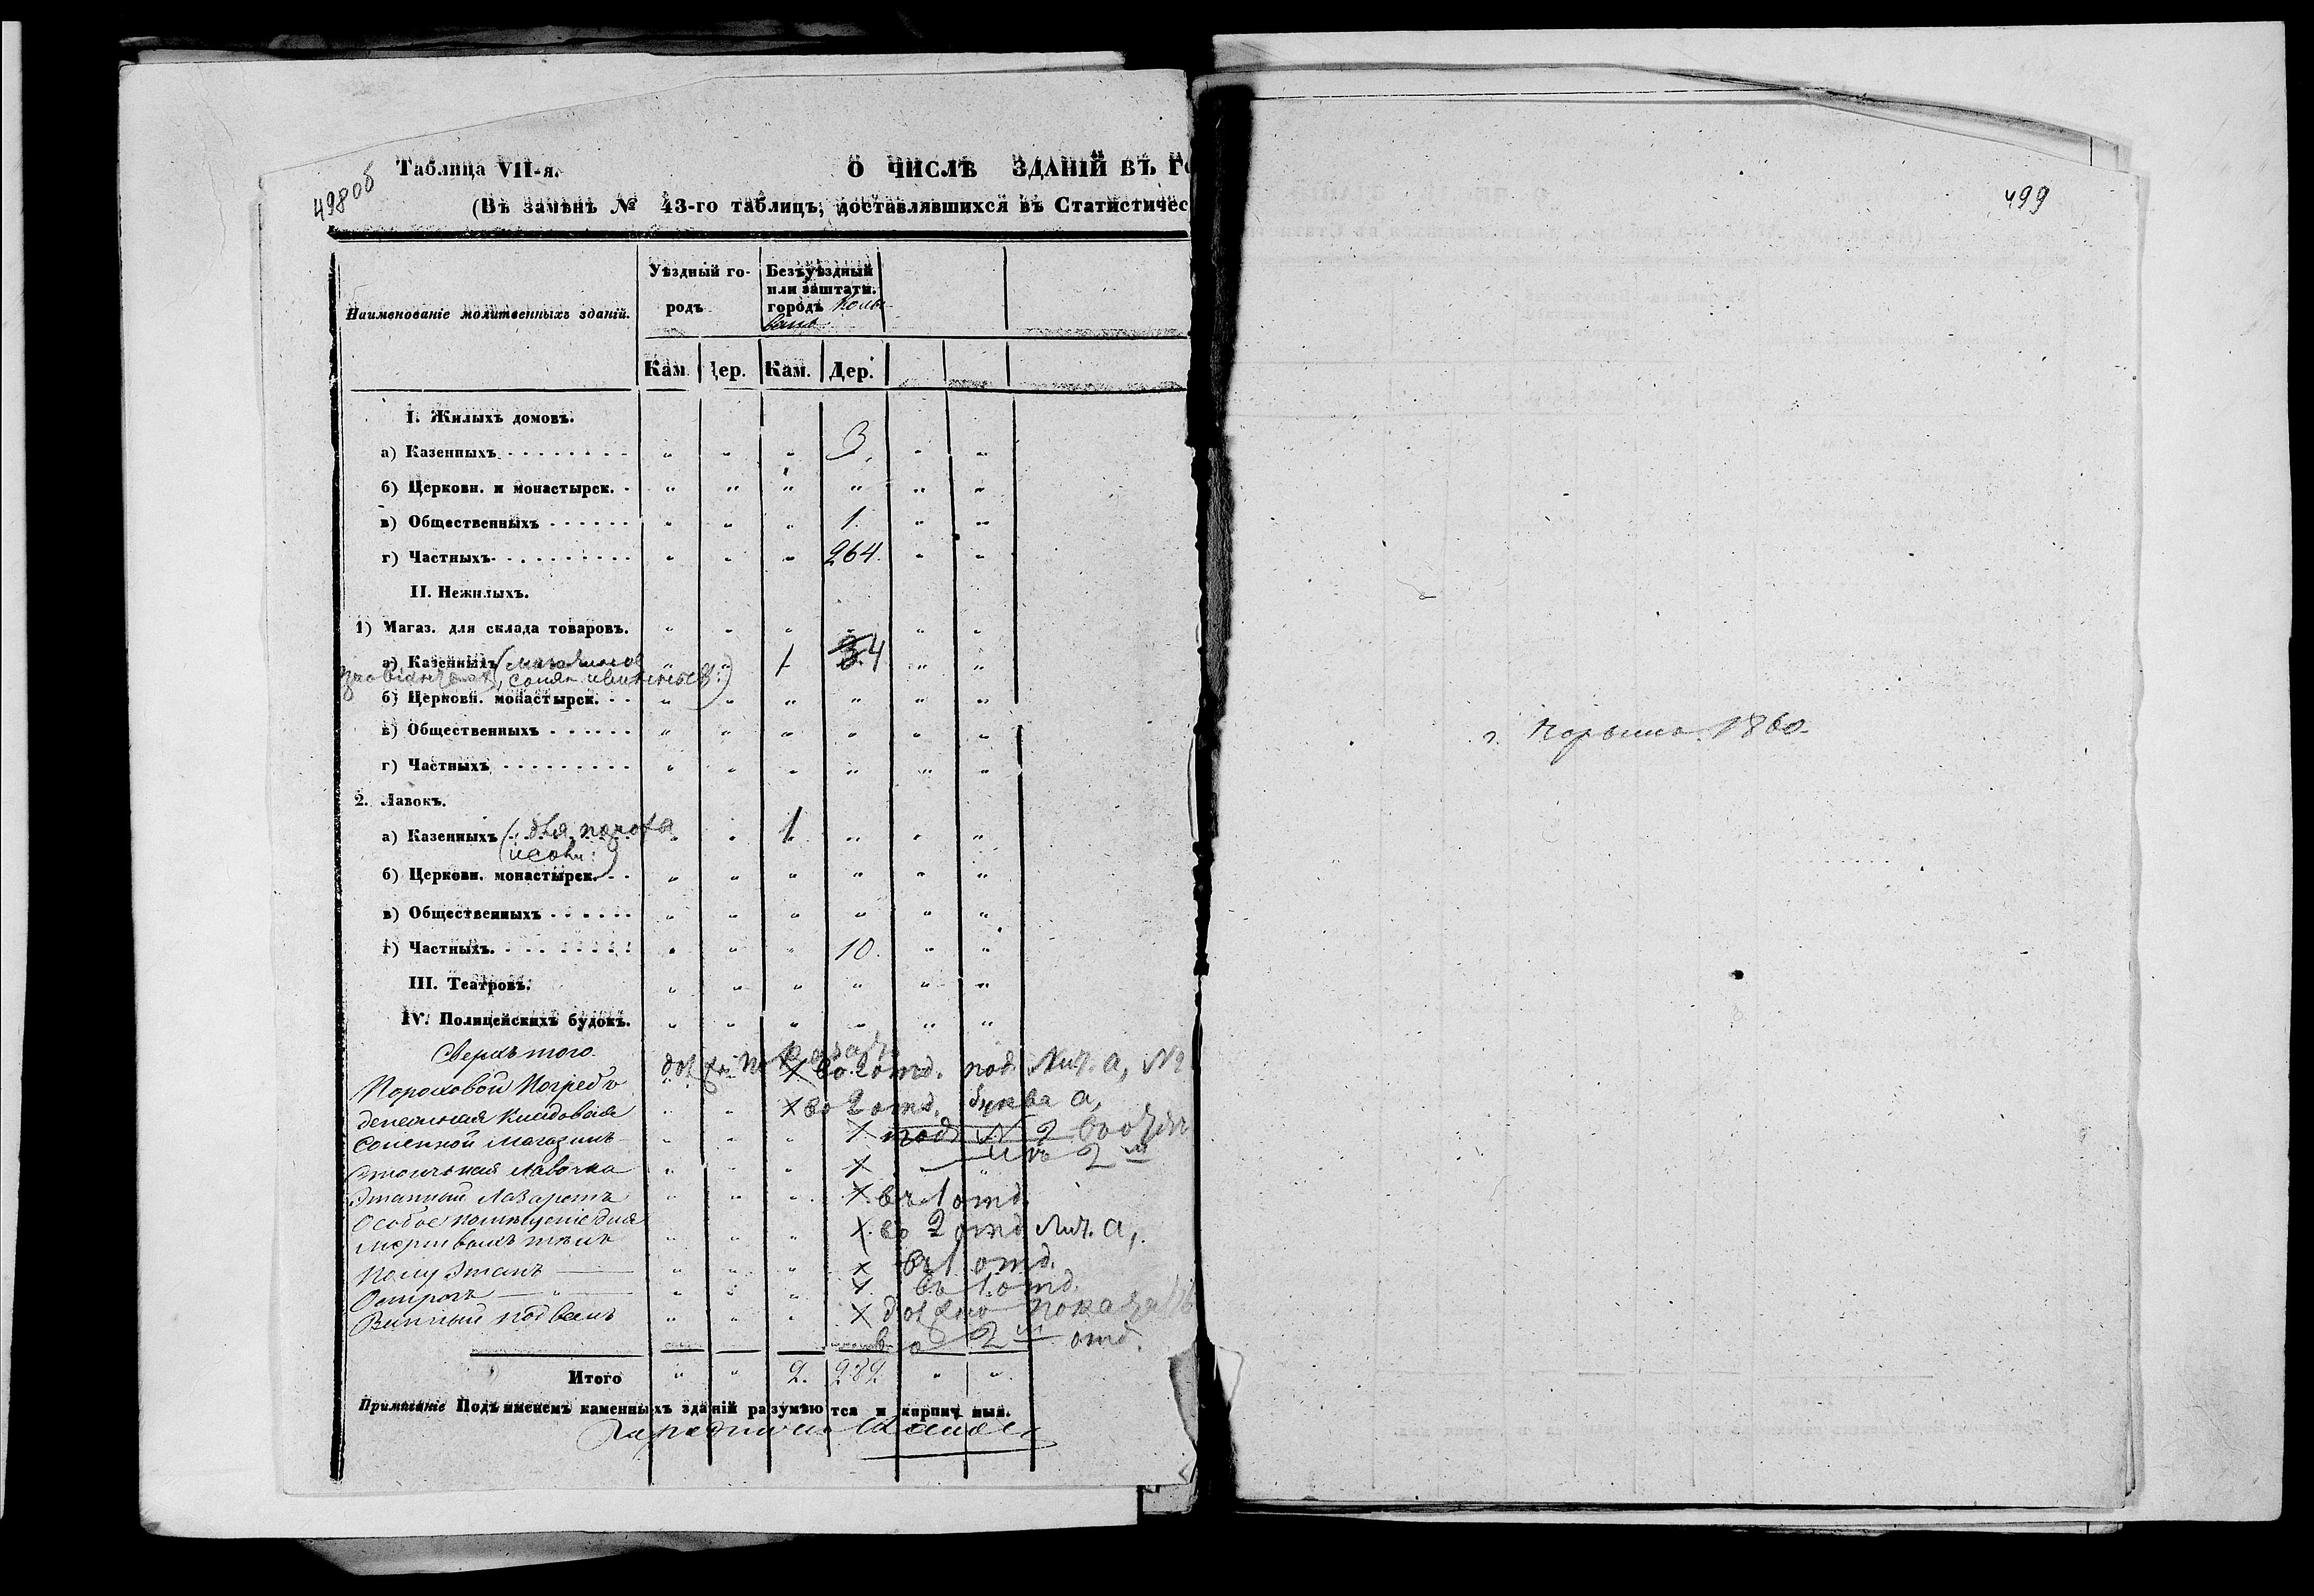 498 об
Таблица VII-я.
О ЧИСЛѢ ЗДАНІЙ ВЪ ГО
(Въ замѣнъ № 43-го таблицъ, доставлявшихся въ Статистичес
Наименованіе молитвенныхъ зданій.
Уѣздный го-
родъ
Безъуѣздный
или заштатн.
городъ Колы
вань
Кам. Дер. Кам. Дер.
I. Жилыхъ домовъ.
а) Казенныхъ „ „ „ 3. „ „
б) Церковн. и монастырск. „ „ „ „ „ „
в) Общественныхъ „ „ „ 1. „ „
г) Частныхъ „ „ „ 264. „ „
II. Нежилыхъ.
1) Магаз. для склада товаровъ. „ „ „ „ „ „
а) Казенныхъ „ „ 1 3.4 „ „
б) Церковн. монастырск. „ „ „ „ „ „
в) Общественныхъ „ „ „ „ „ „
г) Частныхъ „ „ „ „ „ „
2. Лавокъ.
а) Казенныхъ (для пороха „ „ 1 „ „ „
б) Церковн. монастырск. „ „ „ „ „ „
в) Общественныхъ „ „ „ „ „ „
г) Частныхъ. „ „ „ 10. „ „
III. Театровъ. „ „ „ „ „ „
IV. Полицейскихъ будокъ. „ „ „ „ „ „
Сверхъ того
Пороховой Погребъ во 2 отд. под Лит. а, №
денежная Кладовая „ „ во 2 отд. буква а,
Соленой магазинъ „ „ „ 1. подъ № 2
лавочка „ „ „ 2 м
Этапный Лазаретъ „ „ „ въ 1 отд.
Особое помѣщеніе для
мертвыхъ тѣлъ „ „ „ во 2 отд Лит. а,
Полу Этапъ „ „ „ въ 1 отд.
Острогъ „ „ „ въ 1. отд.
Винный подвалъ „ „ „ должно показать
во 2 м отд.
Итого „ „ 2. 282. „ „
Примѣчаніе Подъ именемъ каменныхъ зданій разумѣются и кирпичныя.
499
г. Нарыма. 1860.